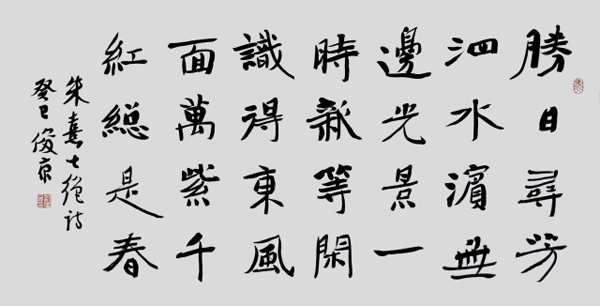 勝日尋芳
泗水濱無
邊光景一
時新等閑
識得東風
面萬紫千
紅總是春
朱熹七絕詩
癸巳俊京